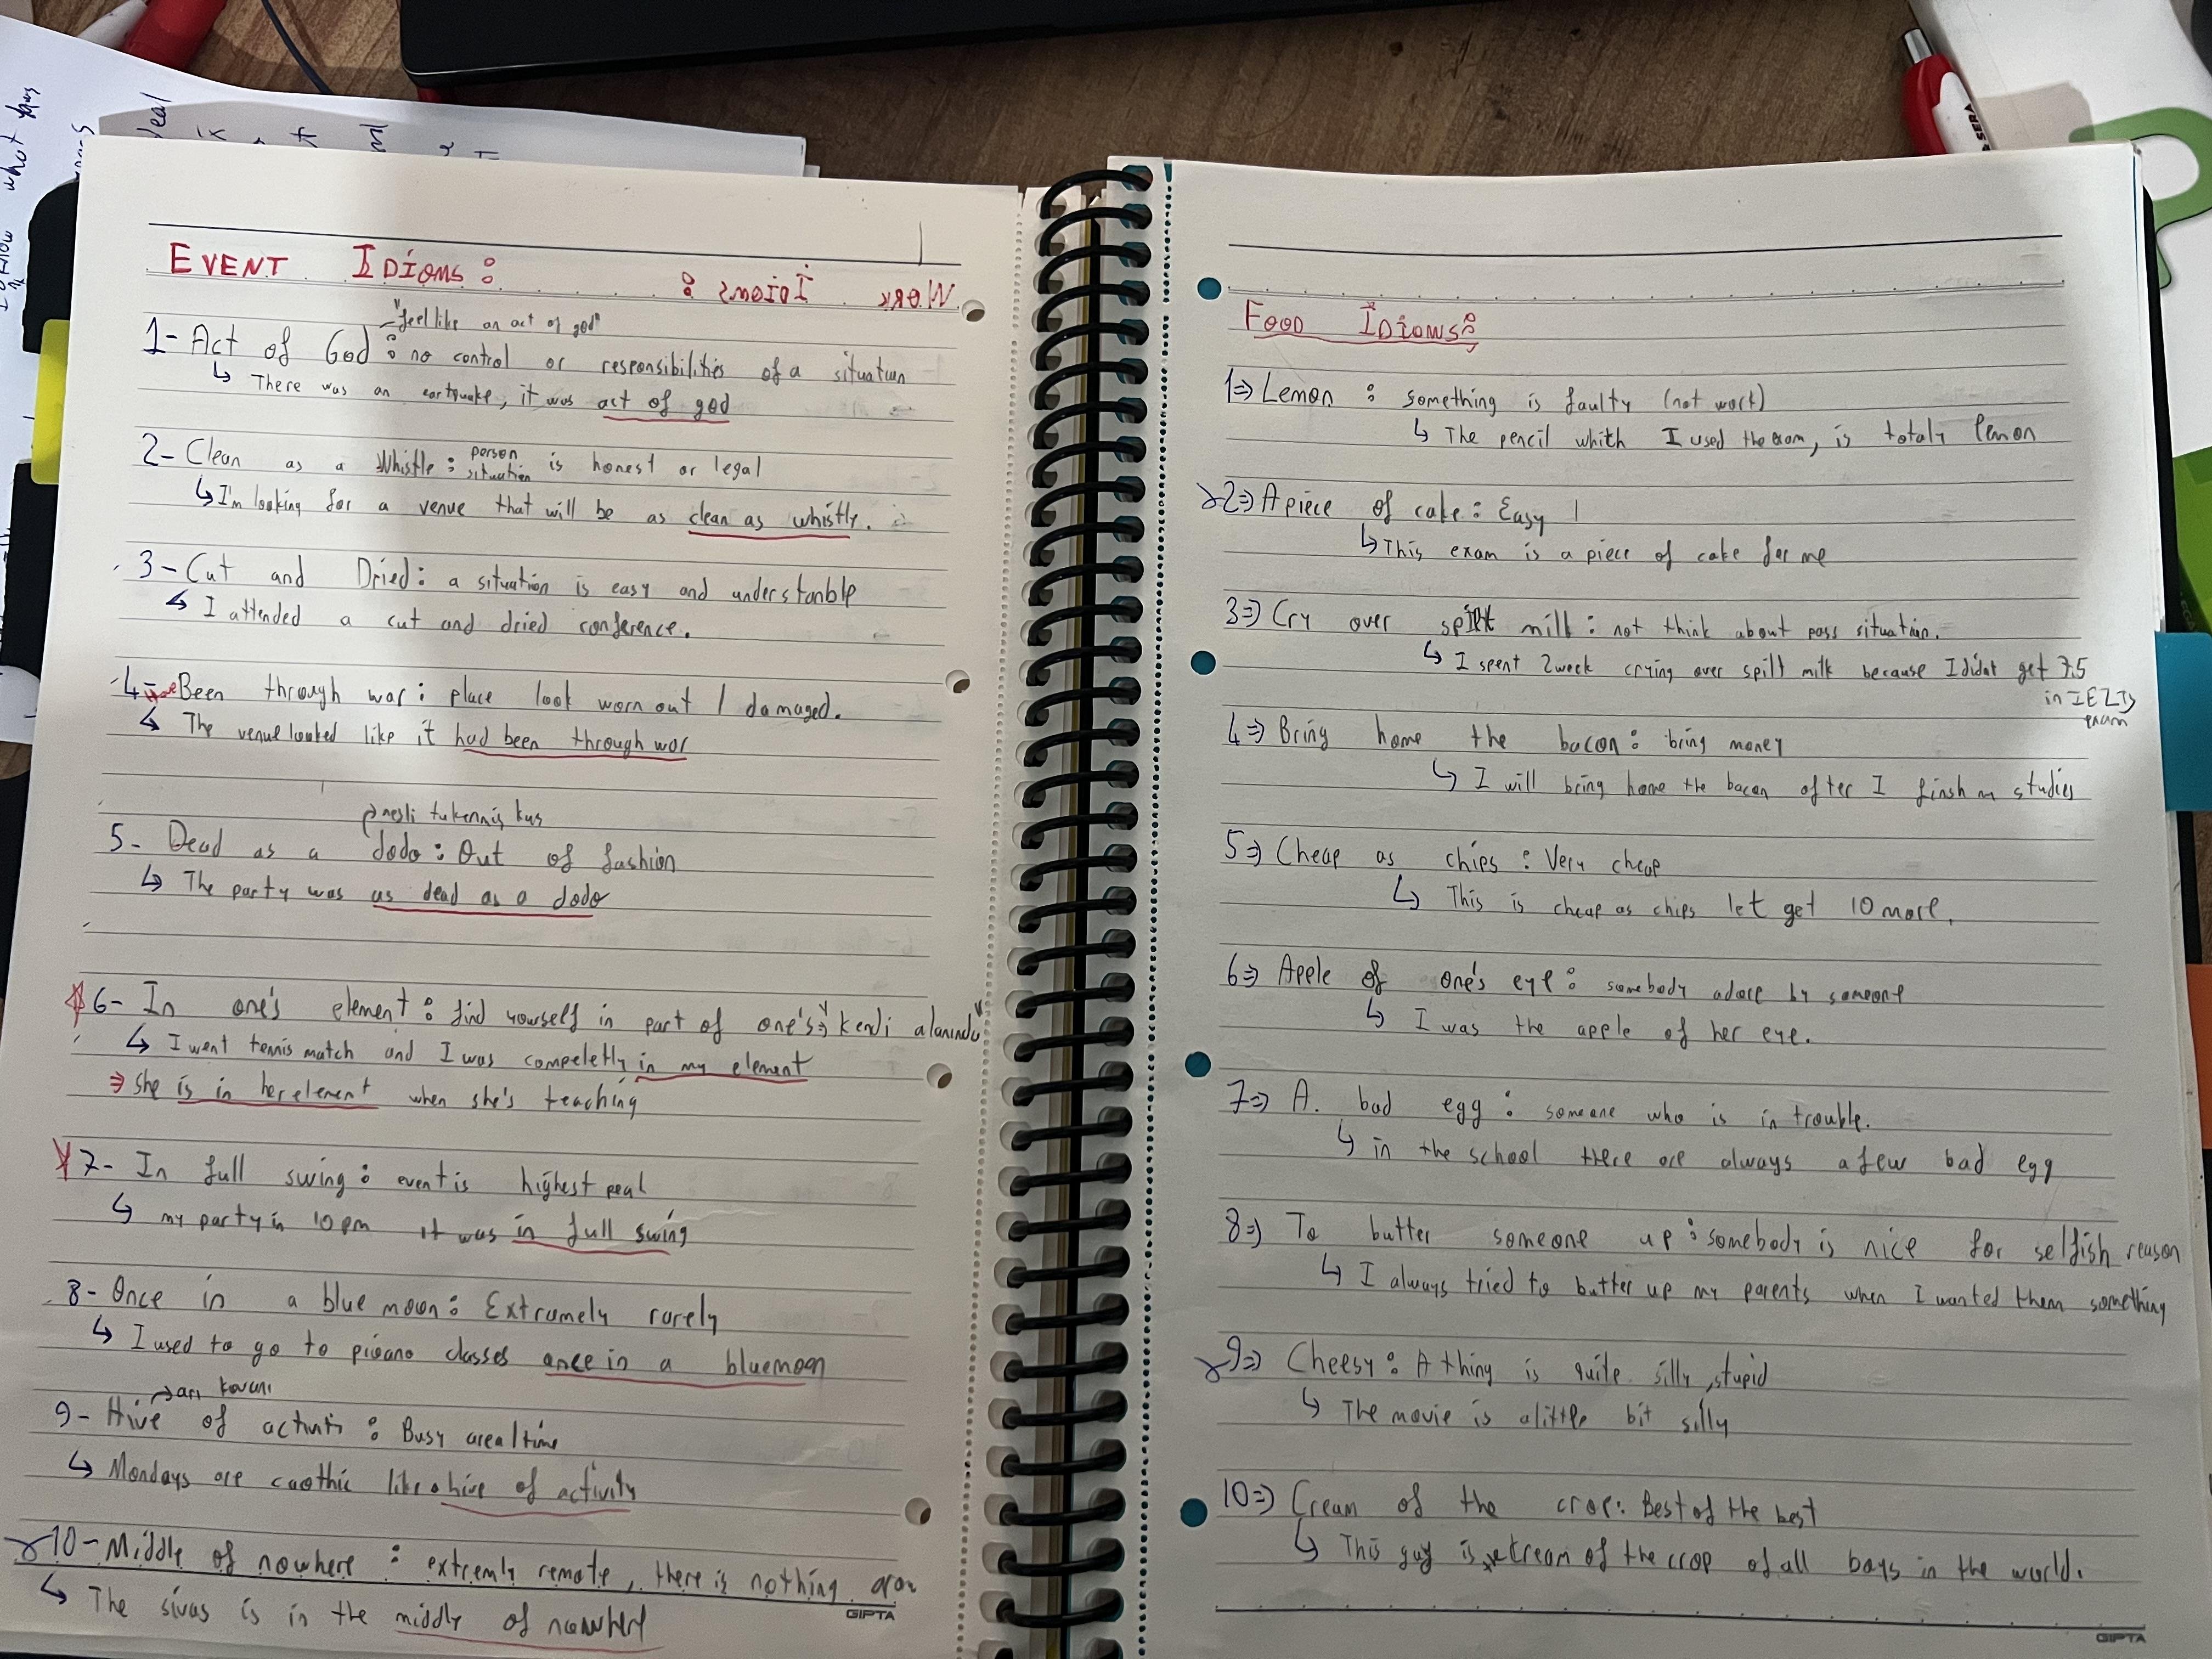 EVENT IDioms :
Work Idioms :
"feel like an act of god"
1- Act of God : no control or responsibilities of a situation
↳ There was an eartquake, it was act of god
2- Clean as a Whistle : person situation is honest or legal
↳ I'm looking for a venue that will be as clean as whistly.
3- Cut and Dried : a situation is easy and understanble
↳ I attended a cut and dried conference.
4- Been through war : place look worn out / damaged.
↳ The venue looked like it had been through war
nesli tukenmis kus
5- Dead as a dodo : Out of fashion
↳ The party was as dead as a dodo
6- In one's element : find yourself in part of one's → kendi alanında
↳ I went tennis match and I was compeletly in my element
⇒ she is in her element when she's teaching
7- In full swing : event is highest peak
↳ my party in 10 pm it was in full swing
8- Once in a blue moon : Extramely rarely
↳ I used to go to pioano classes once in a bluemoon
→ arı kovanı
9- Hive of activity : Busy area/time
↳ Mondays are caothic like a hive of activity
10- Middle of nowhere : extremly remote, there is nothing
↳ The sivas is in the middly of nowhere
GIPTA
FOOD IDIOMS:
1⇒ Lemon : something is faulty (not work)
↳ The pencil whith I used the exam, is totaly lemon
2⇒ A piece of cake : Easy
↳ This exam is a piece of cake for me
3⇒ Cry over spilt milk : not think about pass situation.
↳ I spent 2 week crying over spilt milk because I didnt get 7.5
in IELTS
exam
4⇒ Bring home the bacon : bring money
↳ I will bring home the bacon after I finsh m studies
5⇒ Cheap as chips : Very cheap
↳ This is cheap as chips let get 10 more.
6⇒ Apple of one's eye : somebody adore by someone
↳ I was the apple of her eye.
7⇒ A bad egg : someone who is in trouble.
↳ in the school there are always a few bad egg
8⇒ To butter someone up : somebody is nice for selfish reason
↳ I always tried to butter up my parents when I wanted them something
9⇒ Cheesy : A thing is quite silly, stupid
↳ The movie is a little bit silly
10⇒ Cream of the crop : Best of the best
↳ This guy is cream of the crop of all boys in the world.
GIPTA